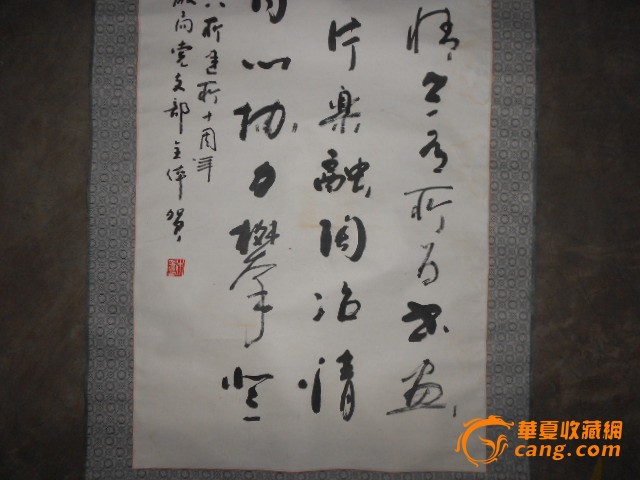 情老有所为书画
片乐融陶冶情
同心协力攀登
八所建所十周年
离向党支部主体贺
華夏收藏網
cang.com